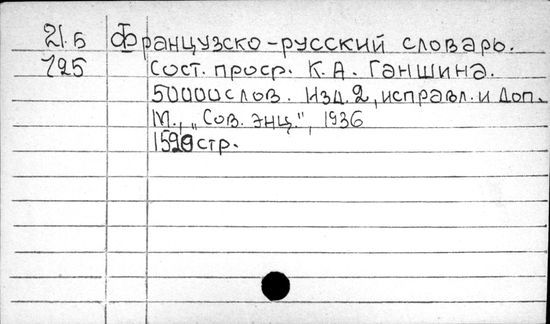 21.Б Французско-русский словарь.
125 Сост. проср. К. А. Ганшина.
50000 слов. Изд. 2, исправл. и доп.
М., „Сов. энц.", 1936
стр.